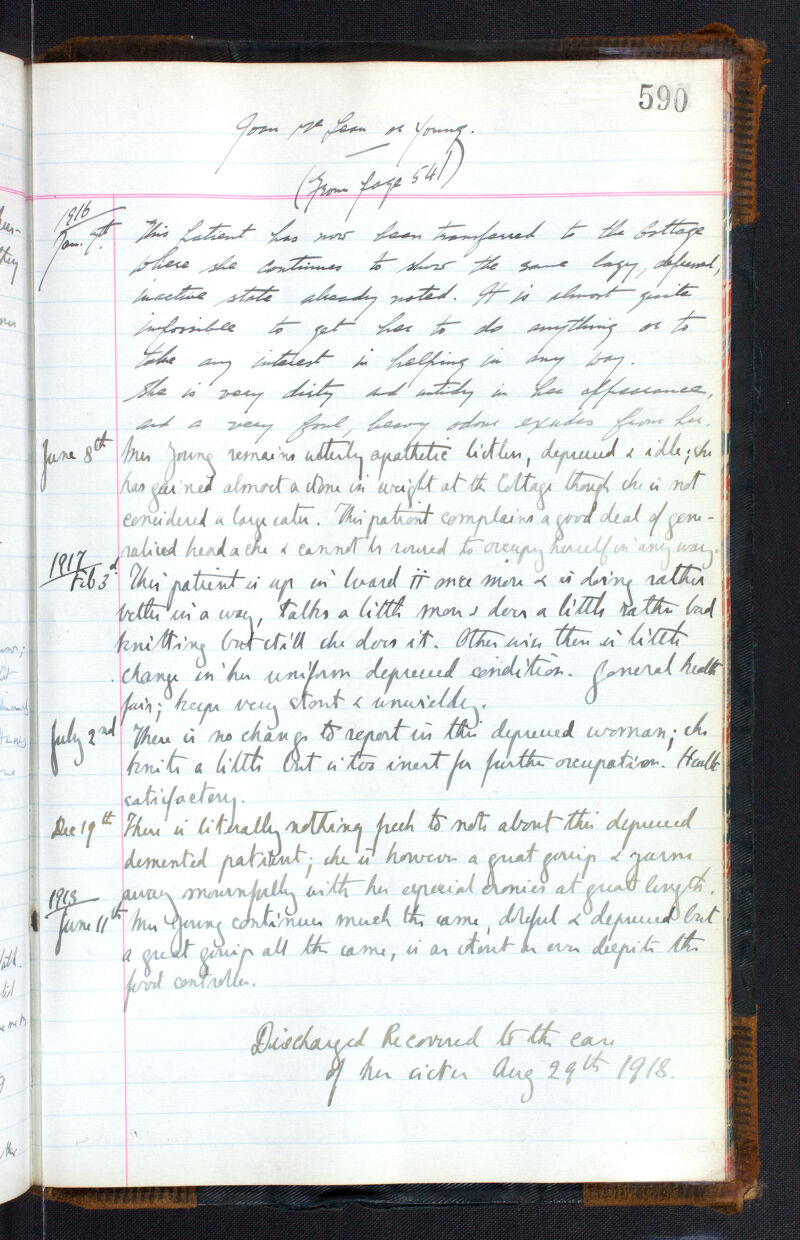 590
Joan McLean or Young.
(From page 541)
1916
Jan. 7th. This patient has now been transferred to the Cottage
where she continues to show the same lazy, depressed,
inactive state already noted. It is almost quite
impossible to get her to do anything or to
take any interest in helping in any way.
She is very dirty and untidy in her appearance,
and a very foul, heavy odour exudes from her.
June 8th Mrs Young remains utterly apathetic listless, depressed & idle; she
has gained almost a stone in weight at the Cottage though she is not
considered a large eater. This patient complains a good deal of gene-
ralised headache & cannot be roused to occupy herself in any way.
1917
Feb 3d. This patient is up in Ward II once more & is doing rather
better in a way, talks a little more & does a little rather bad
knitting but still she does it. Otherwise there is little
change in her uniform depressed condition. General health
fair; keeps very stout & unwieldy.
July 2nd There is no change to report in this depressed woman; she
knits a little but is too inert for further occupation. Health
satisfactory.
Dec 19th There is literally nothing fresh to note about this depressed
demented patient; she is however a great gossip & yarns
away mournfully with her especial cronies at great length.
1918
June 11th Mrs Young continues much the same, doleful & depressed but
a great gossip all the same, is as stout as ever despite the
food controller.
Discharged Recovered to the care
of her sister Aug 29th 1918.